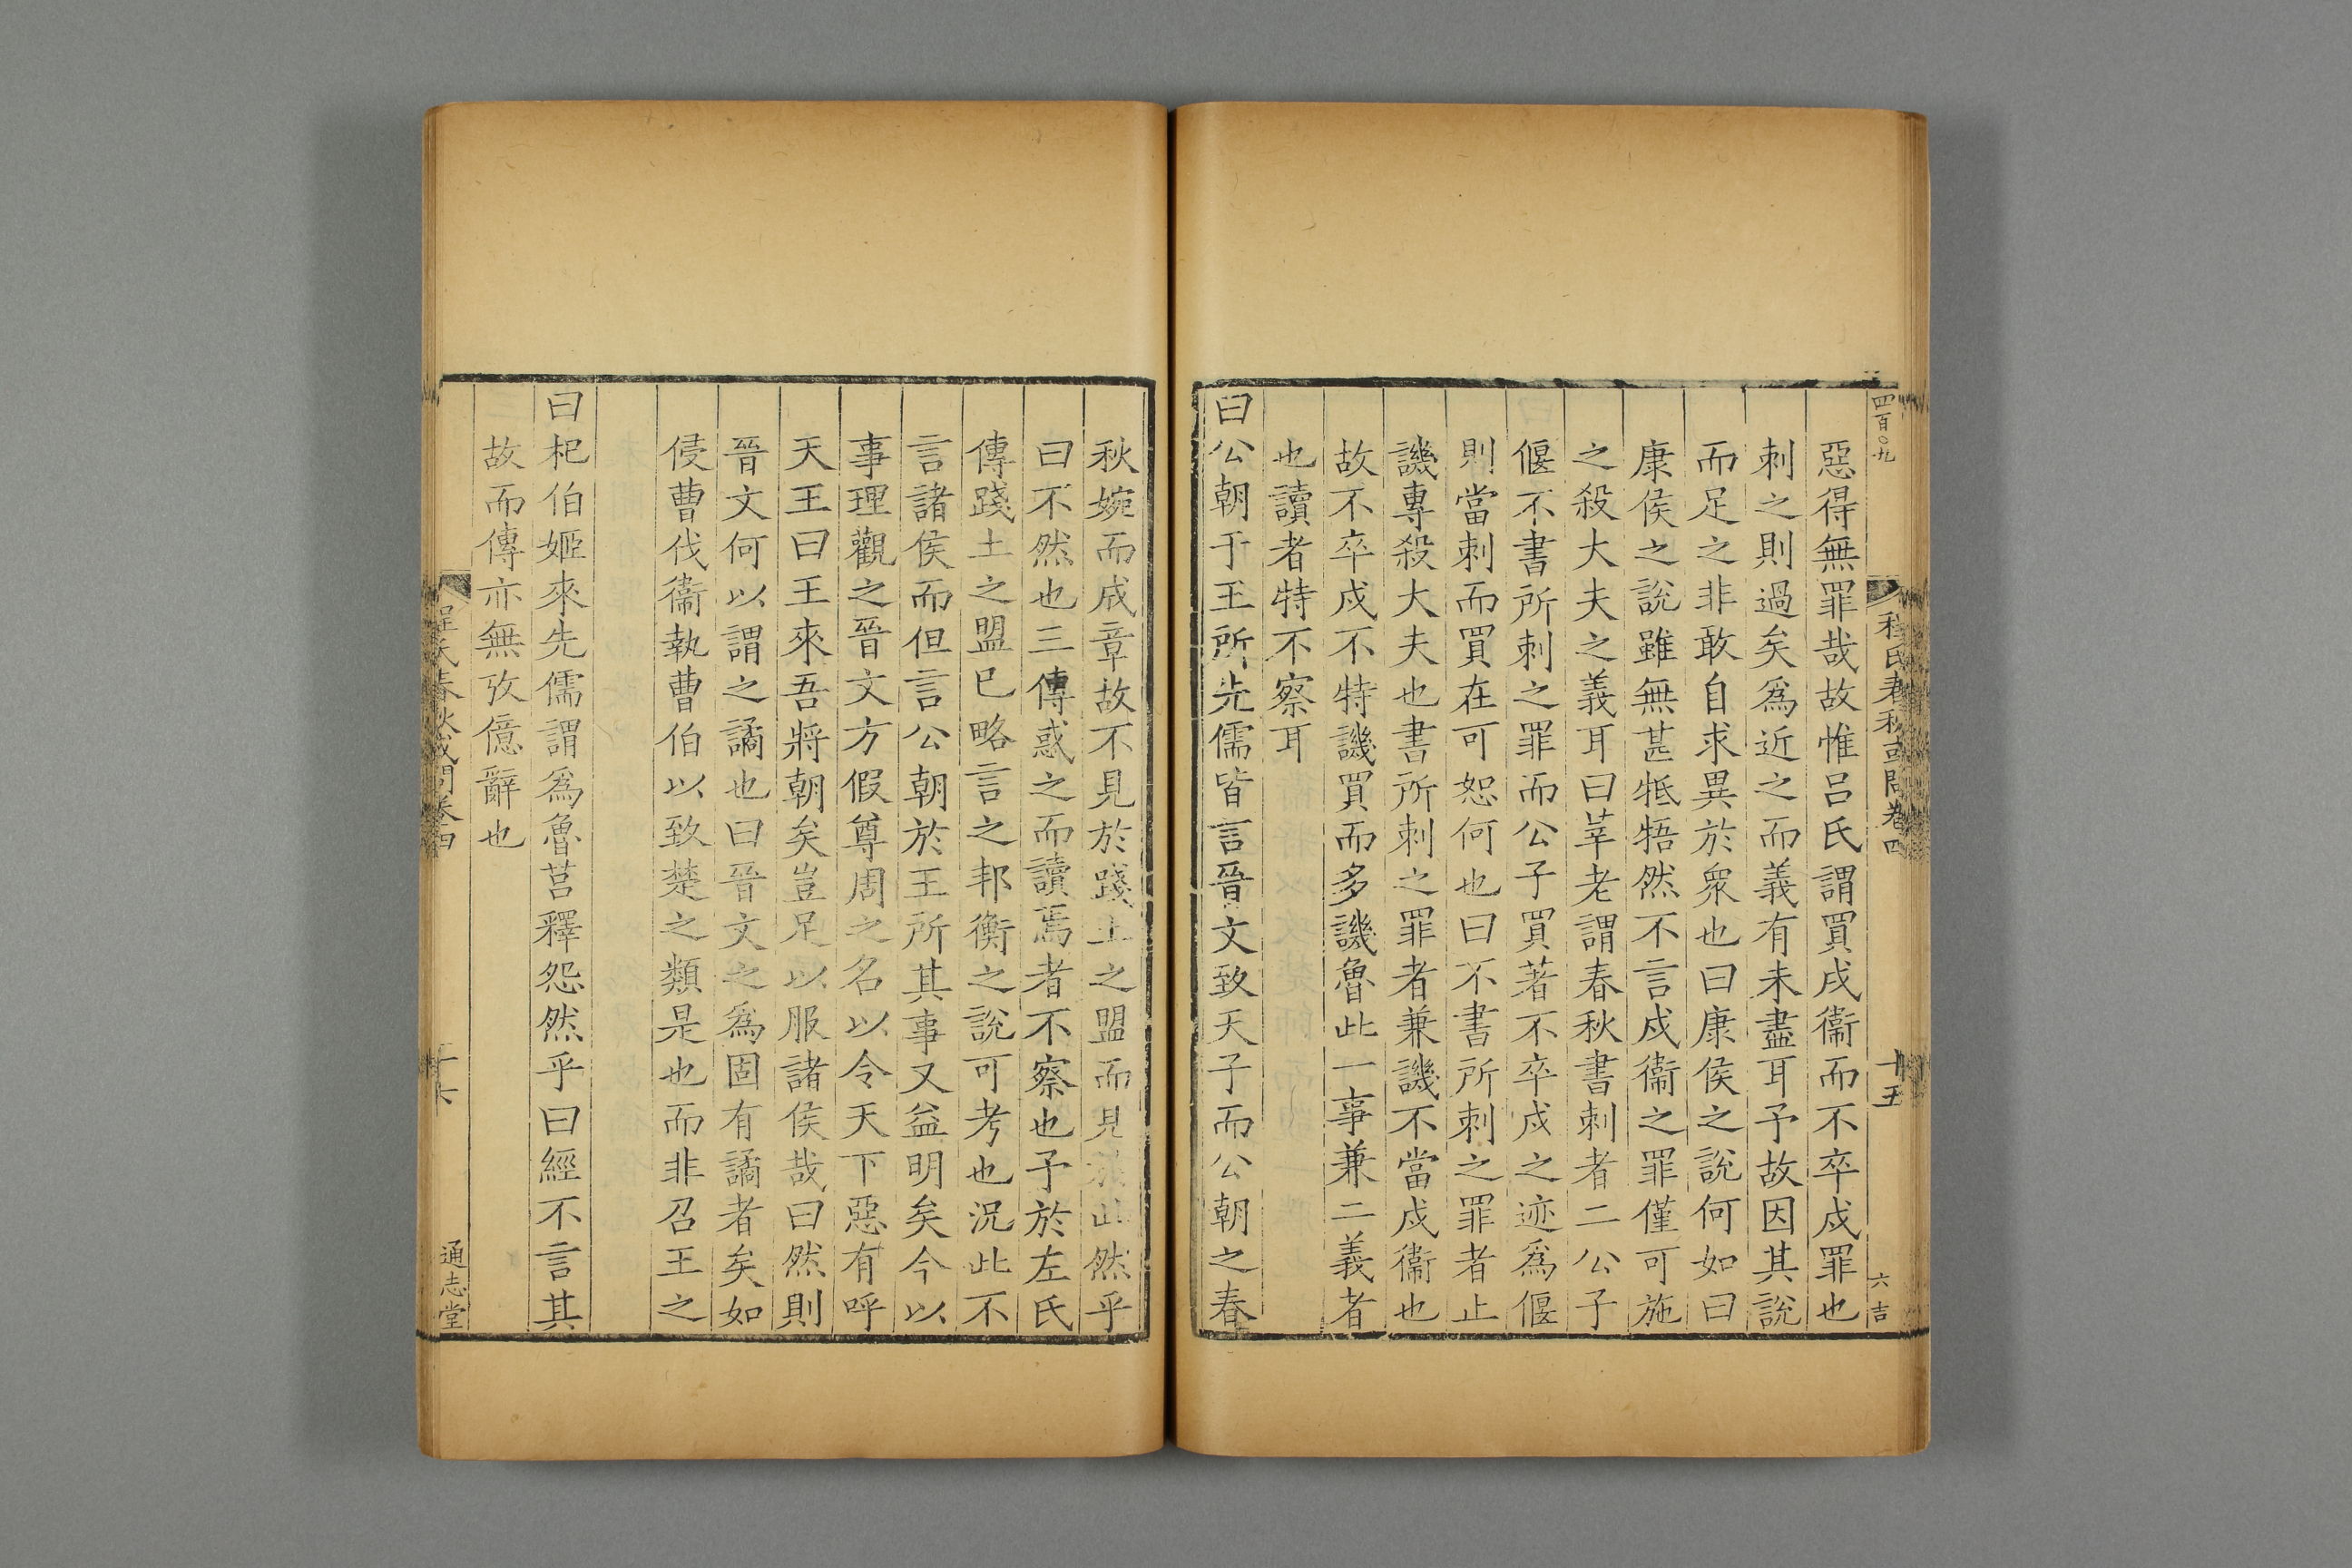 四百○九
程氏春秋或問卷四
十五
六吉
惡得無罪哉故惟呂氏謂買戍衞而不卒戍罪也
刺之則過矣爲近之而義有未盡耳予故因其說
而足之非敢自求異於衆也曰康侯之說何如曰
康侯之說雖無甚牴牾然不言戍衞之罪僅可施
之殺大夫之義耳曰莘老謂春秋書刺者二公子
偃不書所刺之罪而公子買著不卒戍之迹爲偃
則當刺而買在可恕何也曰不書所刺之罪者止
譏專殺大夫也書所刺之罪者兼譏不當戍衞也
故不卒戍不特譏買而多譏魯此一事兼二義者
也讀者特不察耳
曰公朝于王所先儒皆言晉文致天子而公朝之春
秋婉而成章故不見於踐土之盟而見於此然乎
曰不然也三傳惑之而讀焉者不察也予於左氏
傳踐土之盟已略言之邦衡之說可考也況此不
言諸侯而但言公朝於王所其事又益明矣今以
事理觀之晉文方假尊周之名以令天下惡有呼
天王曰王來吾將朝矣豈足以服諸侯哉曰然則
晉文何以謂之譎也曰晉文之爲固有譎者矣如
侵曹伐衞執曹伯以致楚之類是也而非召王之
曰杞伯姬來先儒謂爲魯莒釋怨然乎曰經不言其
故而傳亦無攷億辭也
程氏春秋或問卷四
十六
通志堂